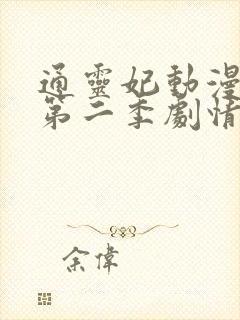 通靈妃動漫
第二季劇情
余偉